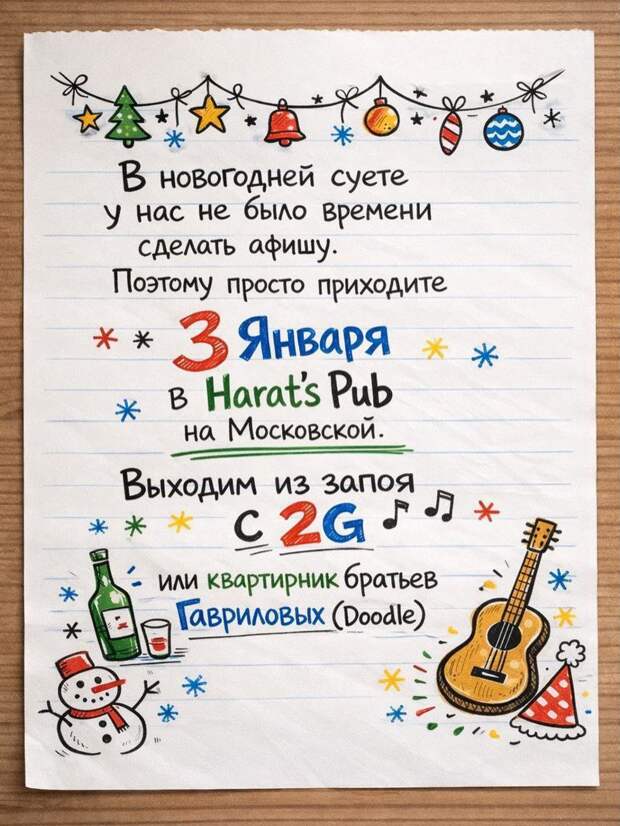 В новогодней суете
у нас не было времени
сделать афишу.
Поэтому просто приходите
3 Января
в Harat's Pub
на Московской.
Выходим из запоя
с 2G
или квартирник братьев
Гавриловых (Doodle)